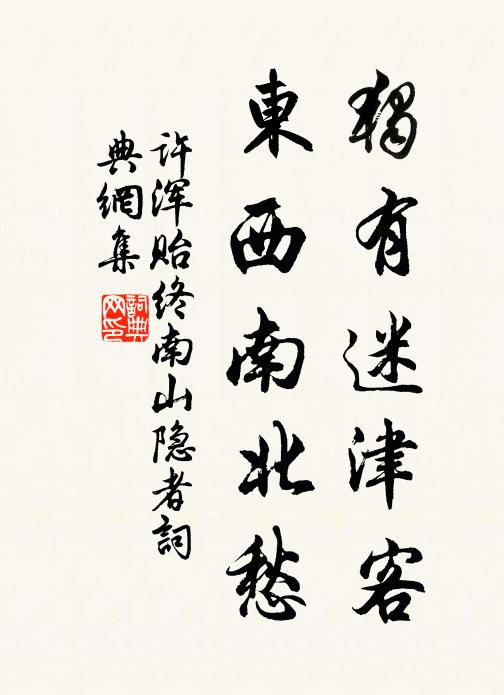 獨有迷津客
東西南北愁
許渾貽終南山隐者詞
典網集
詞典
网印